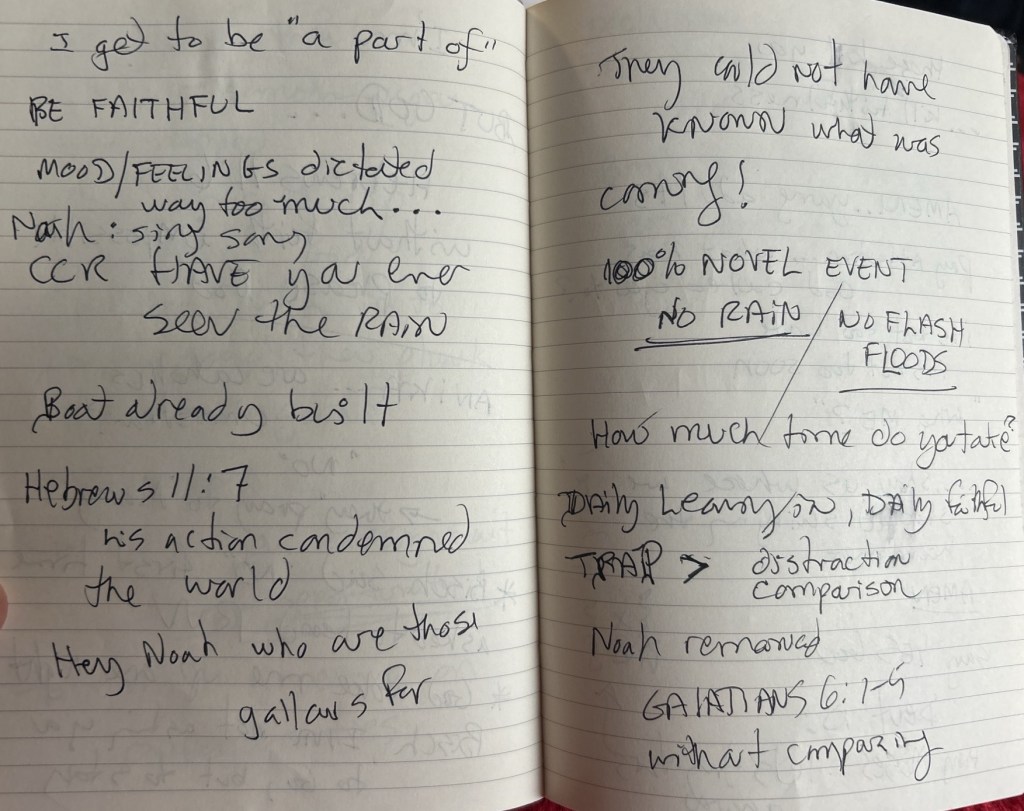 I get to be "a part of"
BE FAITHFUL
MOOD/FEELINGS dictated
way too much...
Noah: sing song
CCR HAVE ya ever
seen the RAIN
Boat already built
Hebrews 11:7
his action condemned
the world
Hey Noah who are those
gallows for
They could not have
KNOWN what was
coming!
100% NOVEL EVENT
NO RAIN / NO FLASH
FLOODS
How much time do ya take?
DAily Leaning in, DAily faithful
TRAP > distraction
comparison
Noah remained
GALATIANS 6:1-5
without comparing